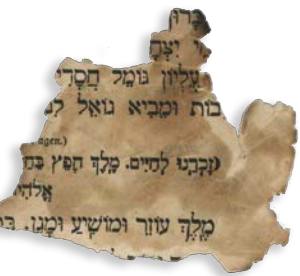 יִצְחָ
עֶלְיוֹן גּוֹמֵל חֲסָדִי
בוֹת וּמֵבִיא גוֹאֵל לִבְ
agem.)
זָכְרֵנוּ לְחַיִּים. מֶלֶךְ חָפֵץ בַּחַ
אֱלֹהִי
מֶלֶךְ עוֹזֵר וּמוֹשִׁיעַ וּמָגֵן. בָּ